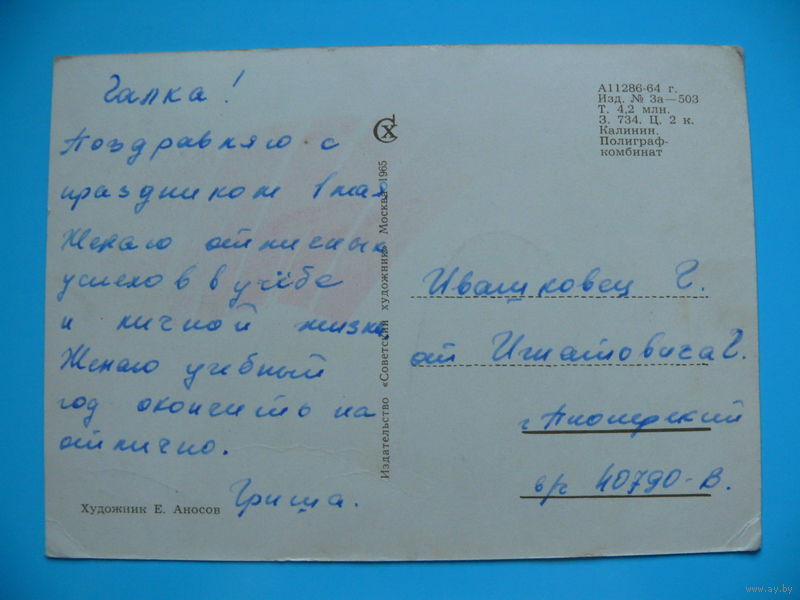 Галка!
Поздравляю с
праздником 1 мая
Желаю отличных
успехов в учёбе
и личной жизни,
Желаю учебный
год окончить на
отлично.
Гриша.
Художник Е. Аносов
Издательство «Советский художник» Москва 1965
СХ
А11286-64 г.
Изд. № 3а—503
Т. 4,2 млн.
З. 734. Ц. 2 к.
Калинин.
Полиграф-
комбинат
Ивашковец Г.
от Игнатовича Г.
г. Пионерский
в/ч 40790-В.
www.ay.by